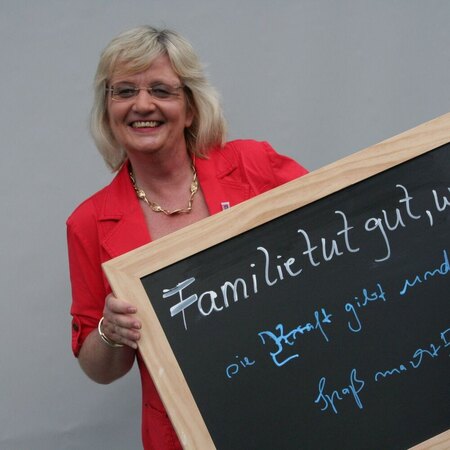 Familie tut gut, w
sie Kraft gibt und
Spaß macht!